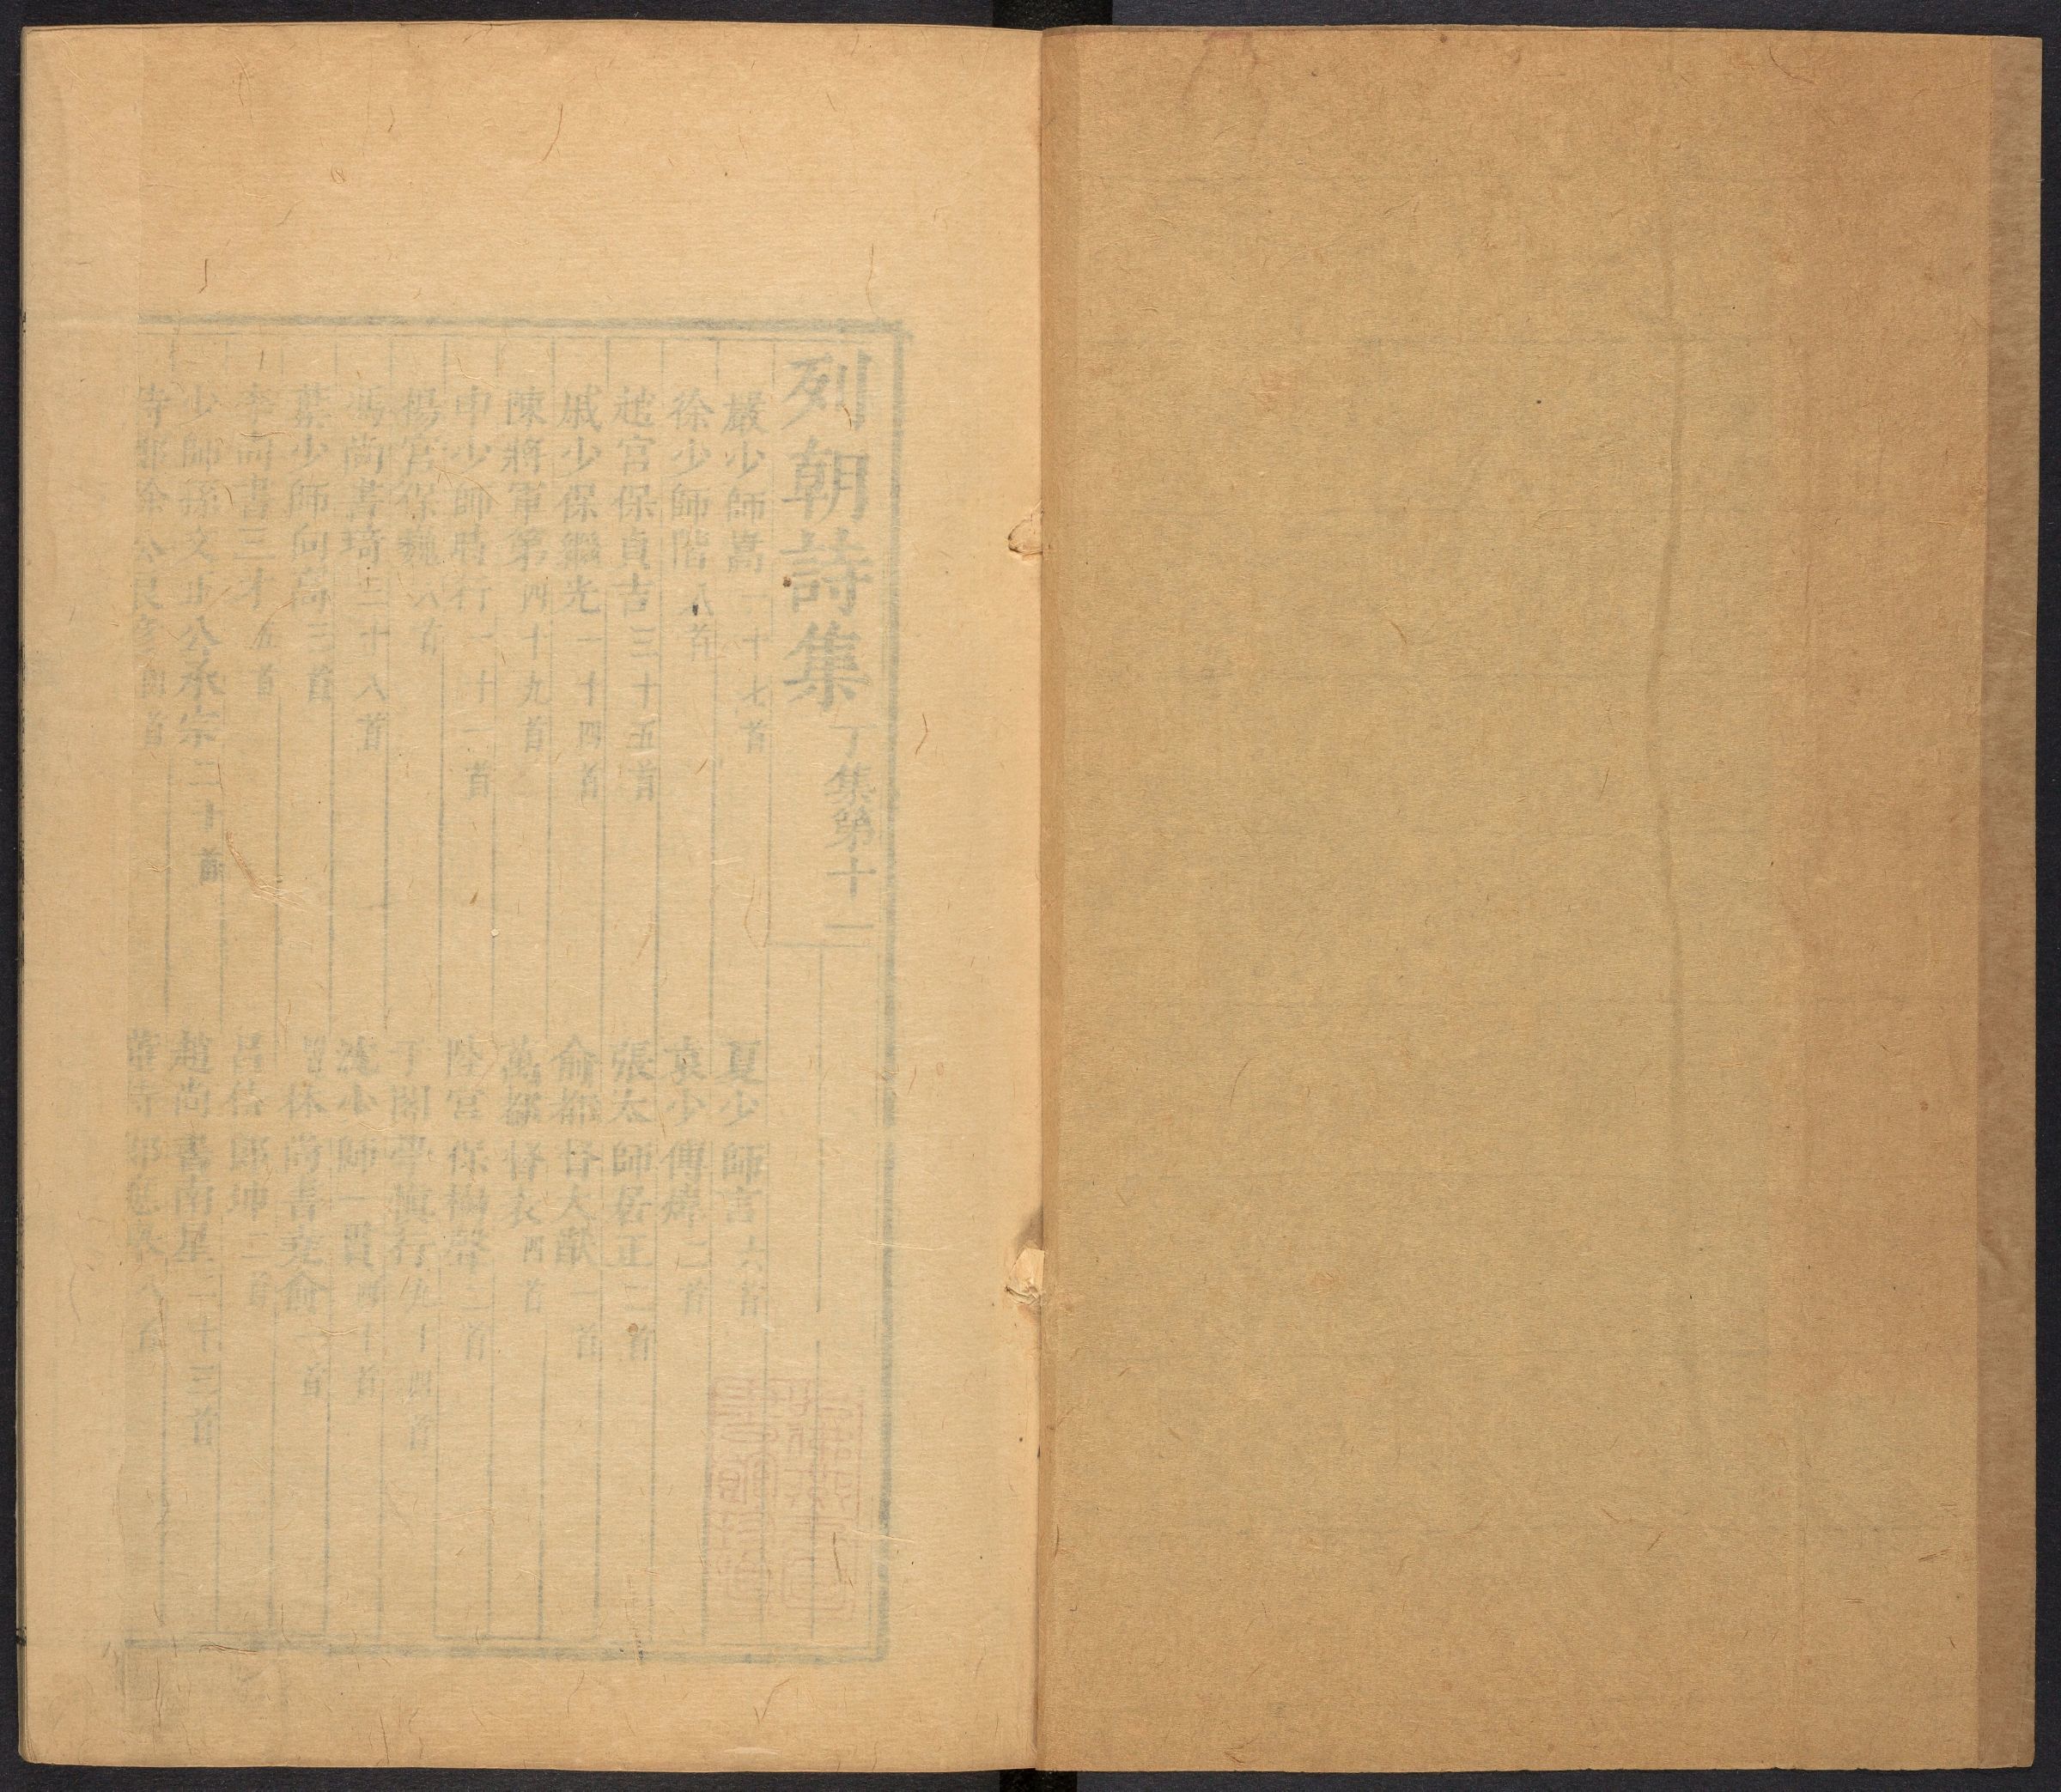 列朝詩集丁集第十一
嚴少師嵩一十七首 夏少師言六首
徐少師階八首 袁少傅煒二首
趙官保貞吉三十五首 張太師居正二首
戚少保繼光一十四首 俞都督大猷一首
陳將軍第四十九首 萬都督表四首
申少師時行一十一首 陸宮保樹聲二首
楊官保巍八首 于閣學慎行九十四首
馮尚書琦二十八首 沈少師一貫四十首
葉少師向高三首 林尚書堯俞一首
李尚書三才五首 呂侍郎坤二首
少師孫文正公承宗二十首 趙尚書南星二十三首
侍郎 公 首 侍郎 首